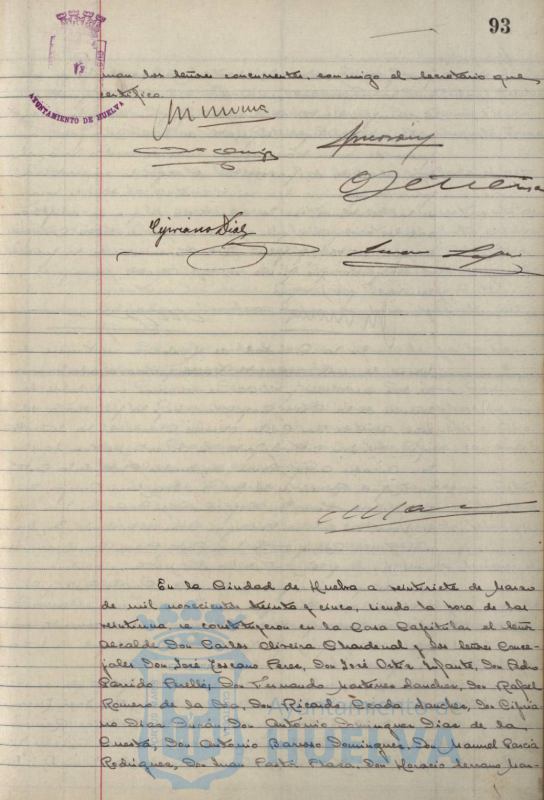 93
AYUNTAMIENTO DE HUELVA
man los señores concurrentes, conmigo el secretario que
certifico.
Cipriano Díaz
En la Ciudad de Huelva a veintisiete de Marzo
de mil novecientos treinta y cinco, siendo la hora de las
veintiuna, se constituyeron en la Casa Capitular el señor
Alcalde Don Carlos Oliveira Chardenal y los señores Conce-
jales Don José Toscano Perez, Don José Ortiz Infante, Don Pedro
Garrido Perelló, Don Fernando Martinez Sanchez, Don Rafael
Romero de la Dia, Don Ricardo Terada Sanchez, Don Cipria
no Díaz Don Antonio Dominguez Diaz de la
Cuesta, Don Antonio Barroso Dominguez, Don Manuel Garcia
Rodriguez, Don Juan Plaza, Don Horacio Serrano Mar-
Ayuntamiento
HUELVA